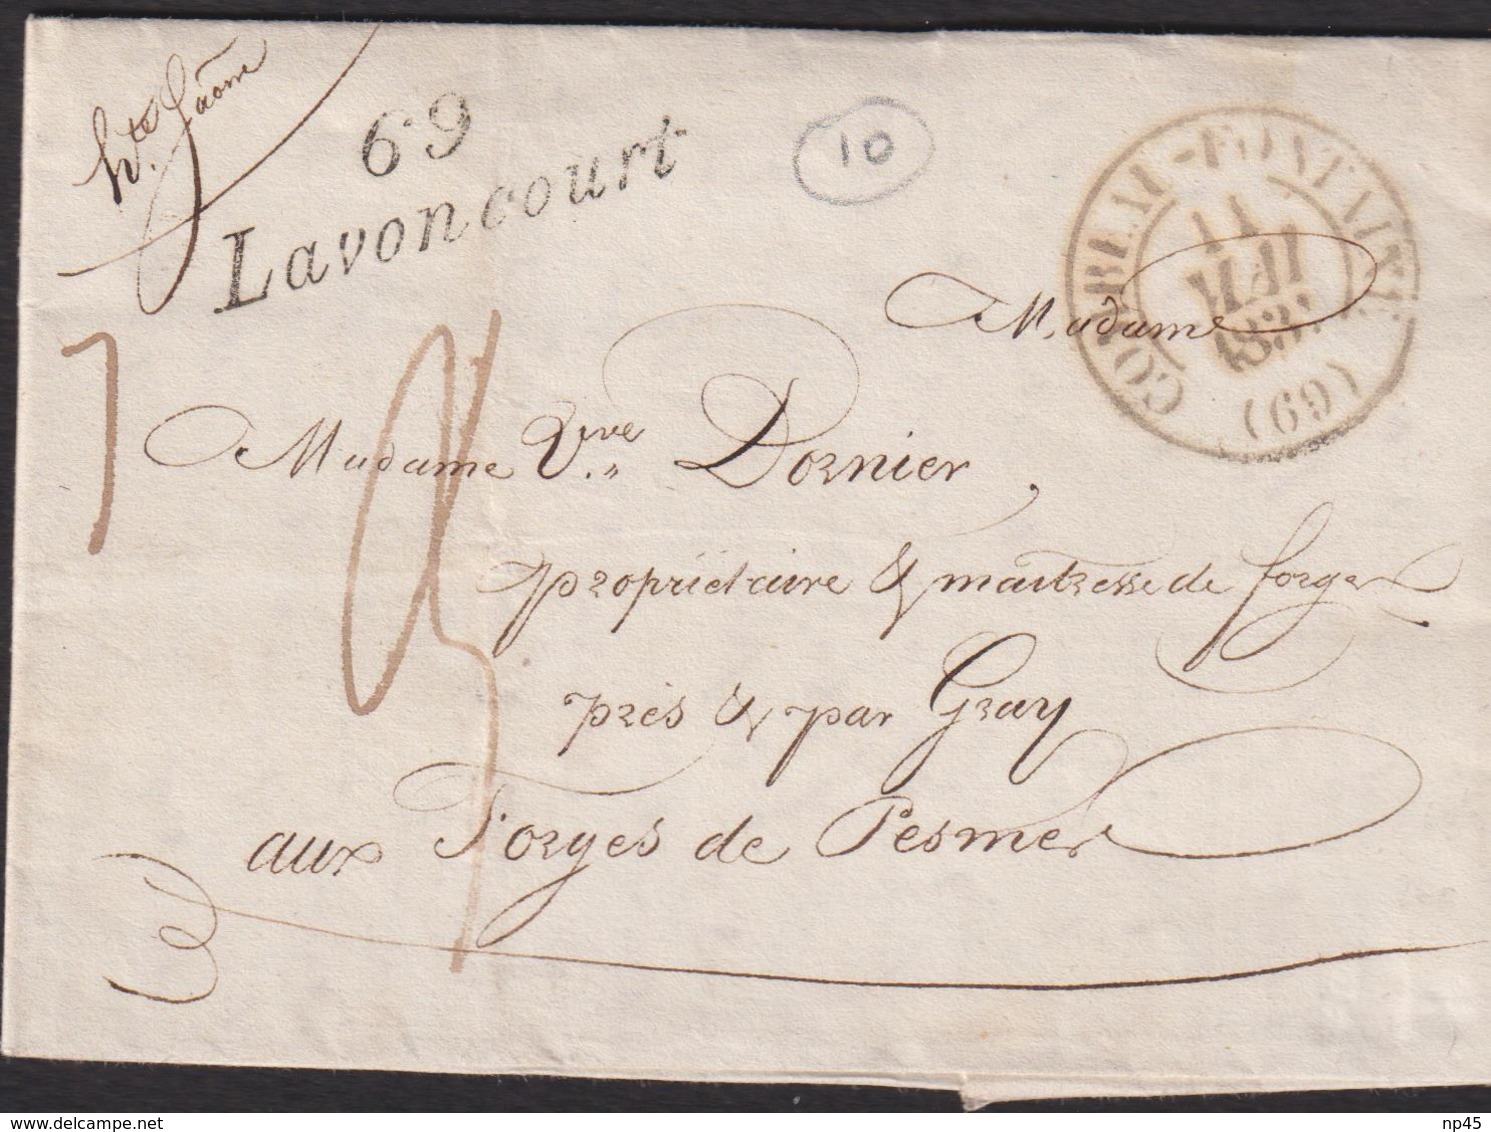 hte. Saône
69
Lavoncourt
10
COMBEAU-FONTAINE
11
MAI
(69)
Madame
Madame Vve. Dornier,
propriétaire & maitresse de forges
près & par Gray
aux Forges de Pesmes
delcampe.net
np45